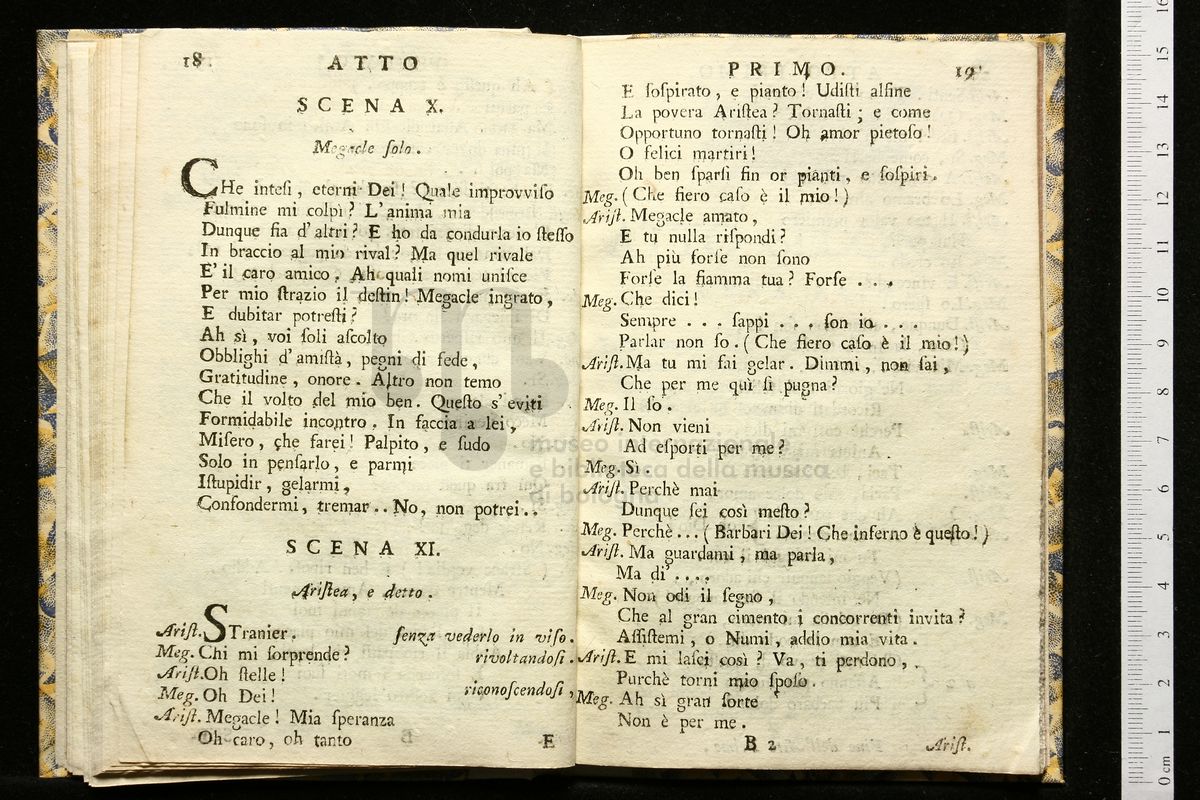 18 ATTO
SCENA X.
Megacle ſolo.
CHe inteſi, eterni Dei! Quale improvviſo
Fulmine mi colpì? L'anima mia
Dunque fia d'altri? E ho da condurla io ſteſſo
In braccio al mio rival? Ma quel rivale
E' il caro amico. Ah quali nomi uniſce
Per mio ſtrazio il deſtin! Megacle ingrato,
E dubitar potreſti?
Ah sì, voi ſoli aſcolto
Obblighi d'amiſtà, pegni di fede,
Gratitudine, onore. Altro non temo
Che il volto del mio ben. Queſto s'eviti
Formidabile incontro. In faccia a lei,
Miſero, che farei! Palpito, e ſudo
Solo in penſarlo, e parmi
Iſtupidir, gelarmi,
Confondermi, tremar.. No, non potrei..
SCENA XI.
Ariſtea, e detto.
Ariſt. STranier. ſenza vederlo in viſo.
Meg. Chi mi ſorprende? rivoltandoſi.
Ariſt. Oh ſtelle!
Meg. Oh Dei! riconoſcendoſi,
Ariſt. Megacle! Mia ſperanza
Oh caro, oh tanto
E
PRIMO. 19
E ſoſpirato, e pianto! Udiſti alfine
La povera Ariſtea? Tornaſti; e come
Opportuno tornaſti! Oh amor pietoſo!
O felici martiri!
Oh ben ſparſi fin or pianti, e ſoſpiri.
Meg. (Che fiero caſo è il mio!)
Ariſt. Megacle amato,
E tu nulla riſpondi?
Ah più forſe non ſono
Forſe la fiamma tua? Forſe ...
Meg. Che dici!
Sempre ... ſappi ... ſon io ...
Parlar non ſo. (Che fiero caſo è il mio!)
Ariſt. Ma tu mi fai gelar. Dimmi, non ſai,
Che per me quì ſi pugna?
Meg. Il ſo.
Ariſt. Non vieni
Ad eſporti per me?
Meg. Sì.
Ariſt. Perchè mai
Dunque ſei così meſto?
Meg. Perchè... (Barbari Dei! Che inferno è queſto!)
Ariſt. Ma guardami, ma parla,
Ma di' ....
Meg. Non odi il ſegno,
Che al gran cimento i concorrenti invita?
Aſſiſtemi, o Numi, addio mia vita.
Ariſt. E mi laſci così? Va, ti perdono,.
Purchè torni mio ſpoſo.
Meg. Ah sì gran ſorte
Non è per me.
B 2 Ariſt.
museo internazionale
e biblioteca della musica
di bologna
0 cm 1 2 3 4 5 6 7 8 9 10 11 12 13 14 15 16